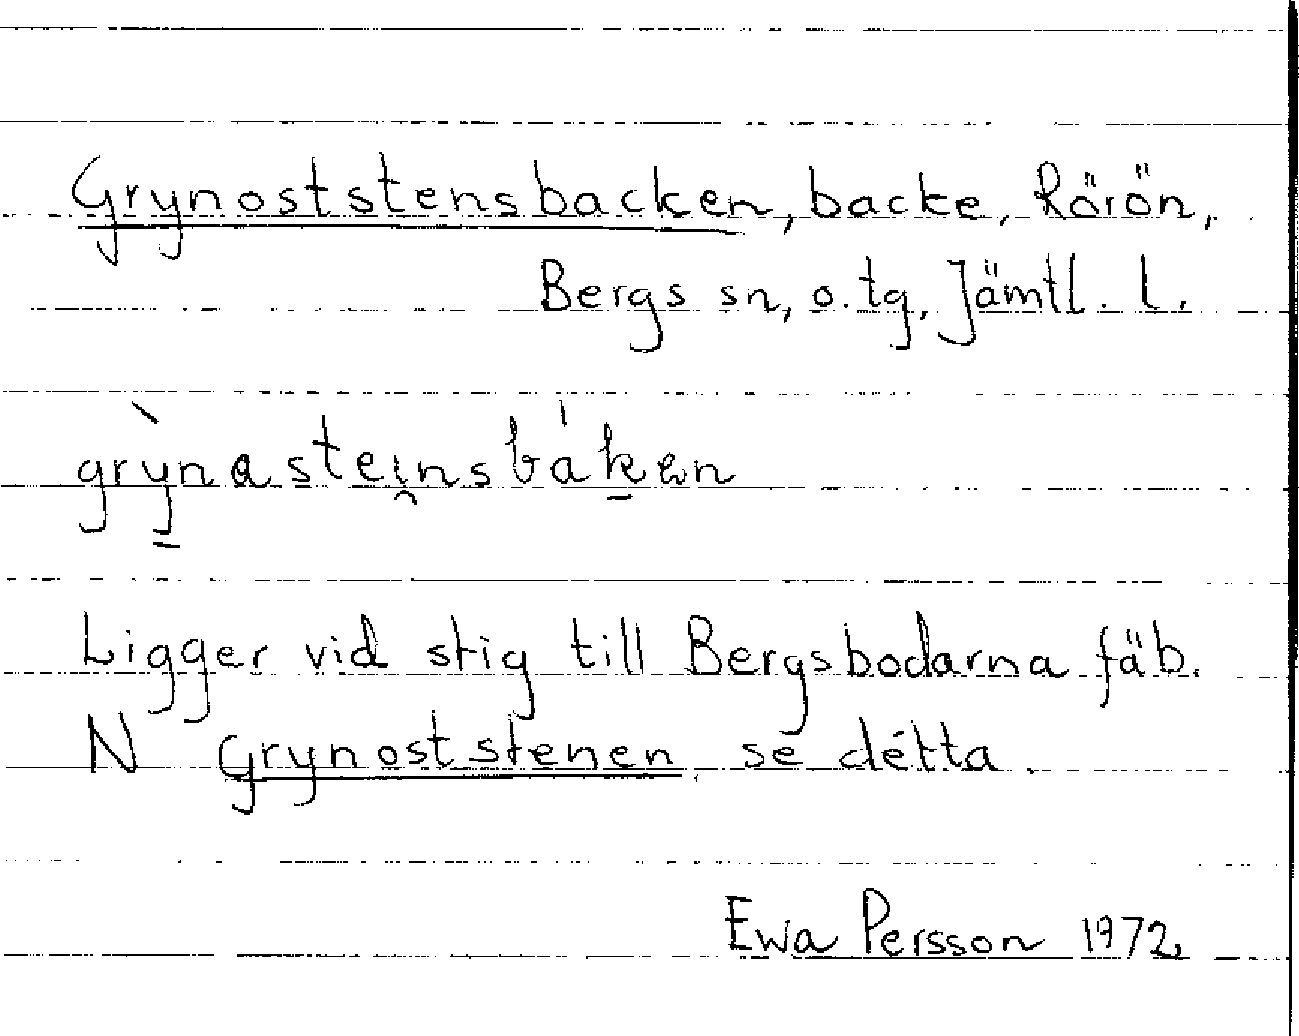 Grynoststensbacken, backe, Rörön,
Bergs sn, o.tg, Jämtl. l.
grỳnasteinsbákən
Ligger vid stig till Bergsbodarna fäb.
N Grynoststenen se détta.
Ewa Persson 1972